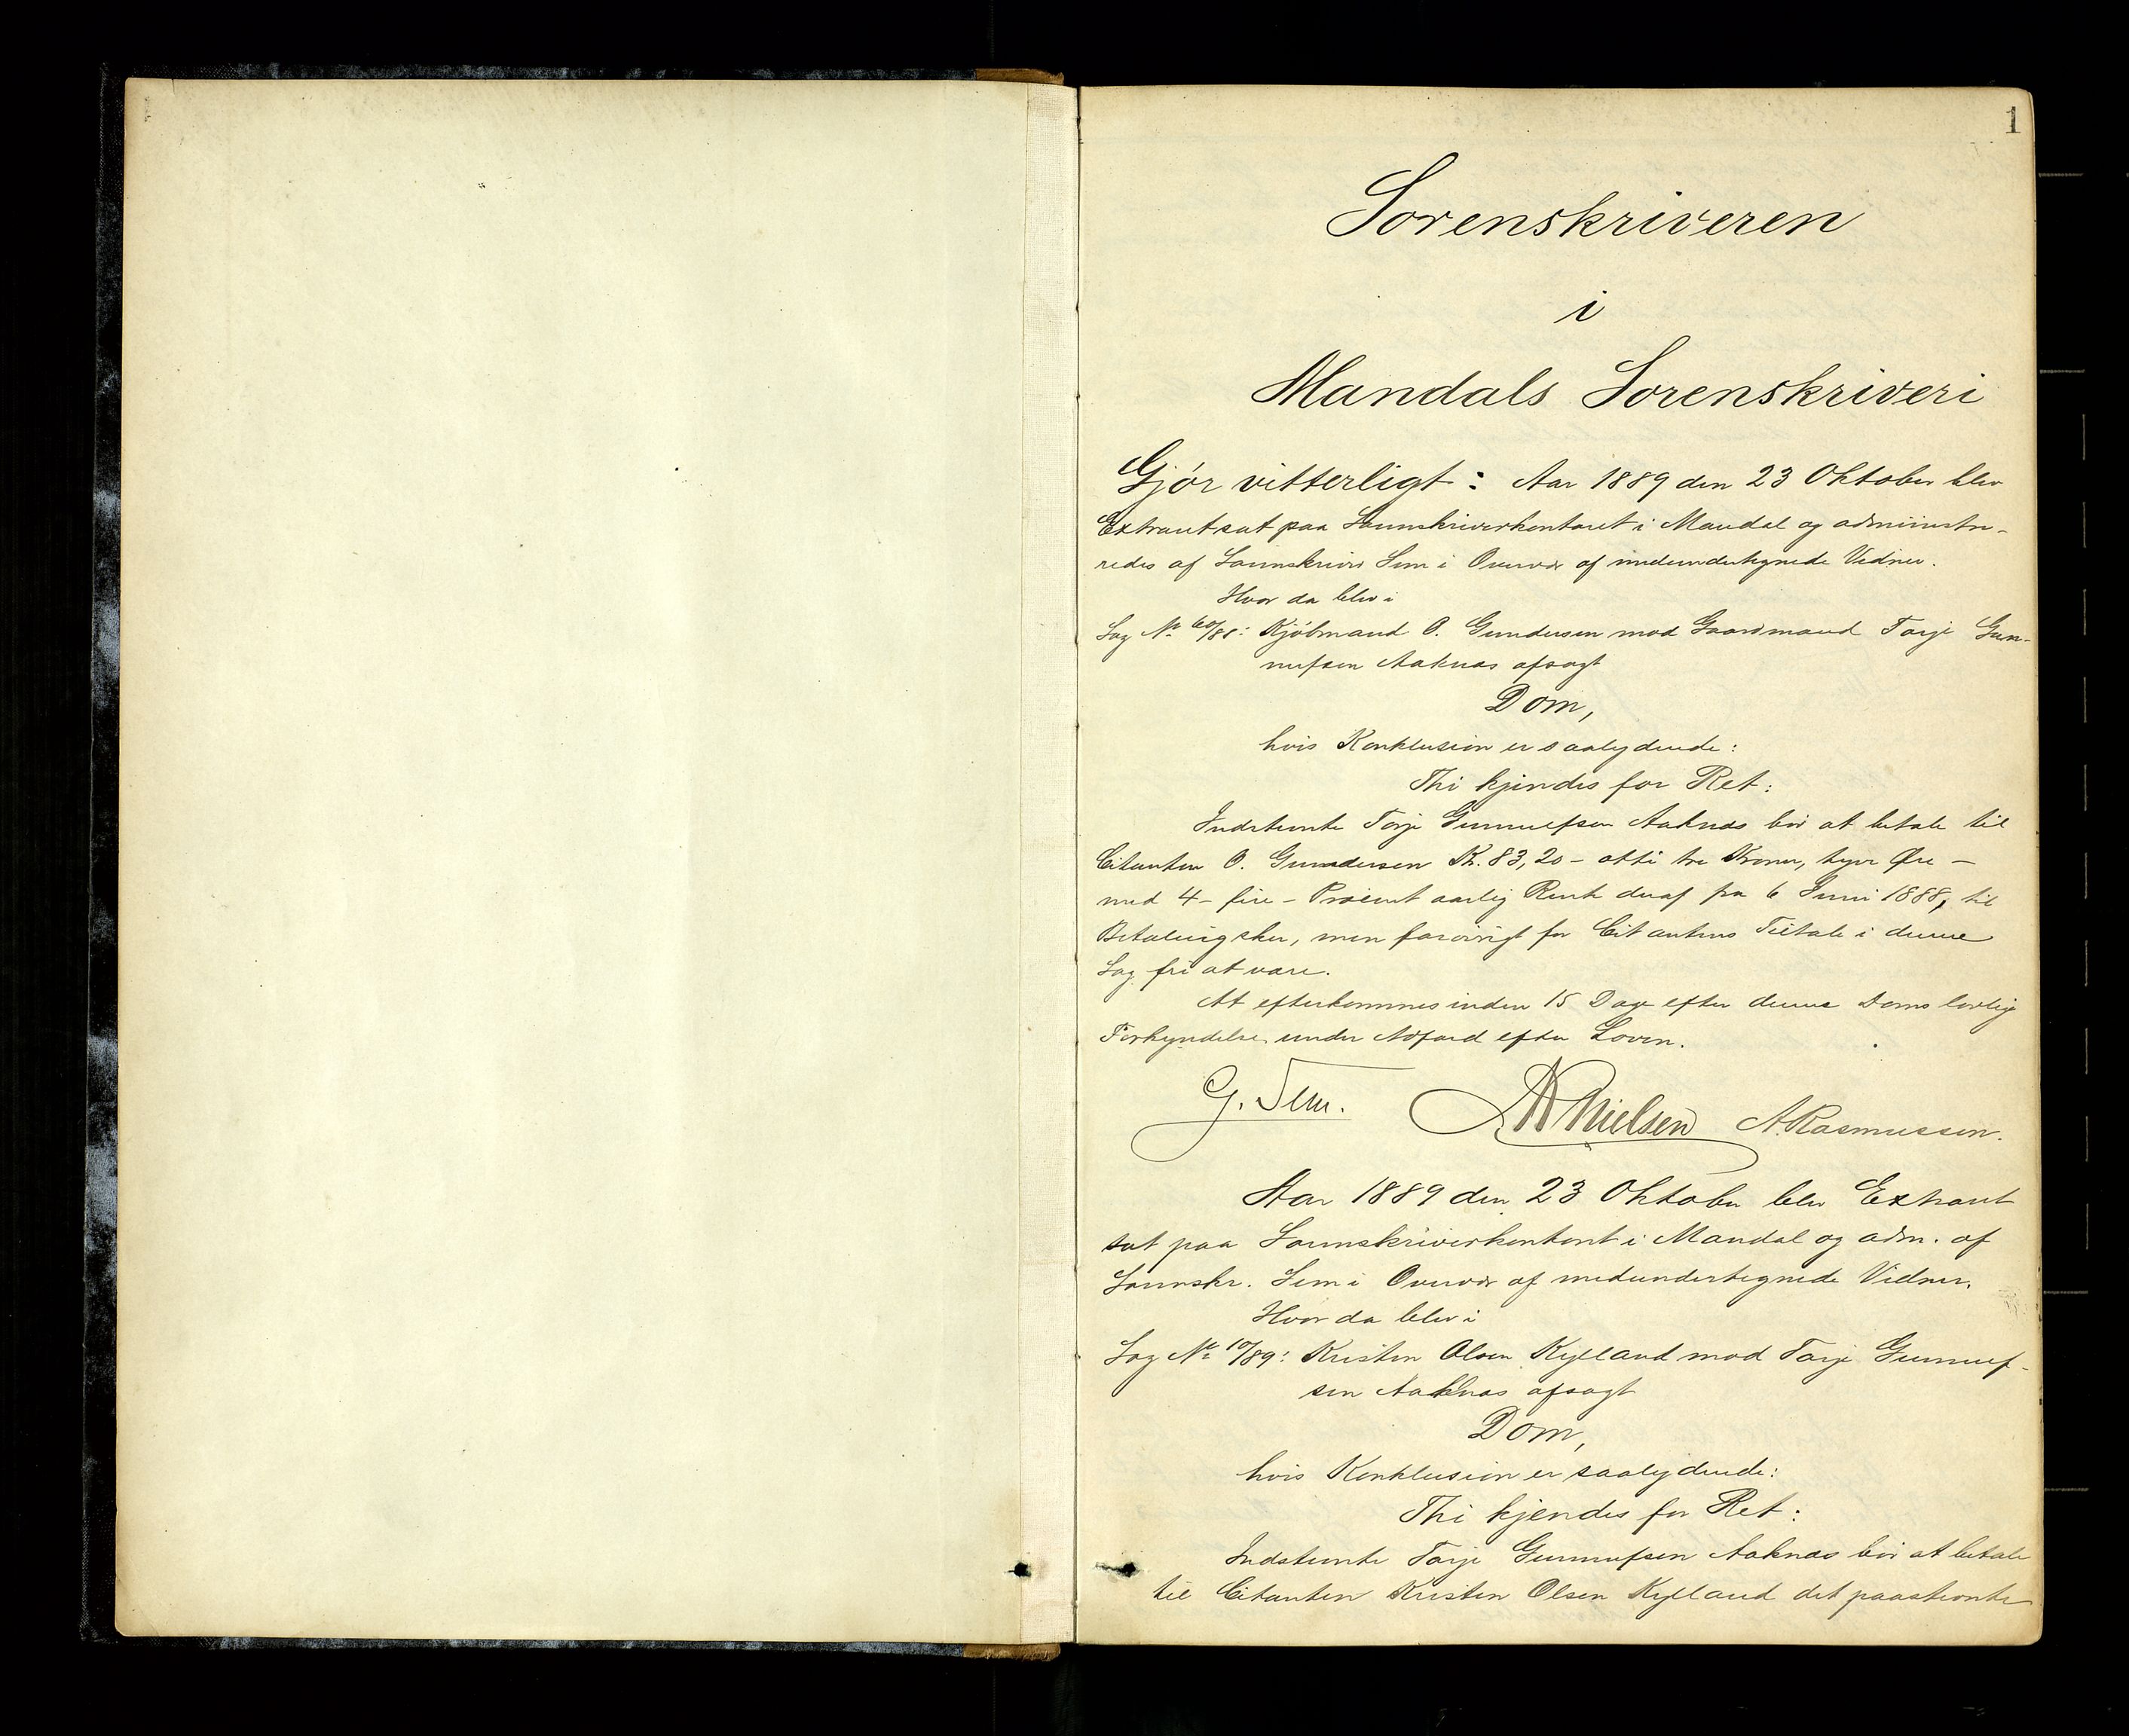 1
Sorenskriveren
i
Mandals Sorenskriveri
Gjör vitterligt: Aar 1889 den 23 Oktober blev
Extraret sat paa Sorenskriverkontoret i Mandal og administre-
redes af Sorenskriver Sem i Overvær af medundertegnede Vidner.
Hvor da blev i
Sag No 60/88: Kjöbmand O. Gundersen mod Gaardmand Tarje Gun-
nufsen Aaknes afsagt
Dom,
hvis Konklusion er saalydende:
Thi kjendes for Ret:
Indstevnte Tarje Gunnufsen Aaknes bör at betale til
Citanten O. Gundersen Kr. 83,20 - otti tre Kroner, tyve Øre -
med 4 - fire - Procent aarlig Rente deraf fra 6 Juni 1888, til
Betaling sker, men forövrigt for Citantens Tiltale i denne
Sag fri at være.
At efterkommes inden 15 Dage efter denne Doms lovlige
Forkyndelse under Adfærd efter Loven.
G. Sem. A Nielsen A. Rasmussen.
Aar 1889 den 23 Oktober blev Extraret
sat paa Sorenskriverkontoret i Mandal og adm. af
Sorenskr. Sem i Overvær af medundertegnede Vidner.
Hvor da blev i
Sag No 10/89: Kristen Olsen Kylland mod Tarje Gunnuf-
sen Aaknes afsagt
Dom,
hvis Konklusion er saalydende:
Thi kjendes for Ret:
Indstevnte Tarje Gunnufsen Aaknes bör at betale
til Citanten Kristen Olsen Kylland det paastevnte